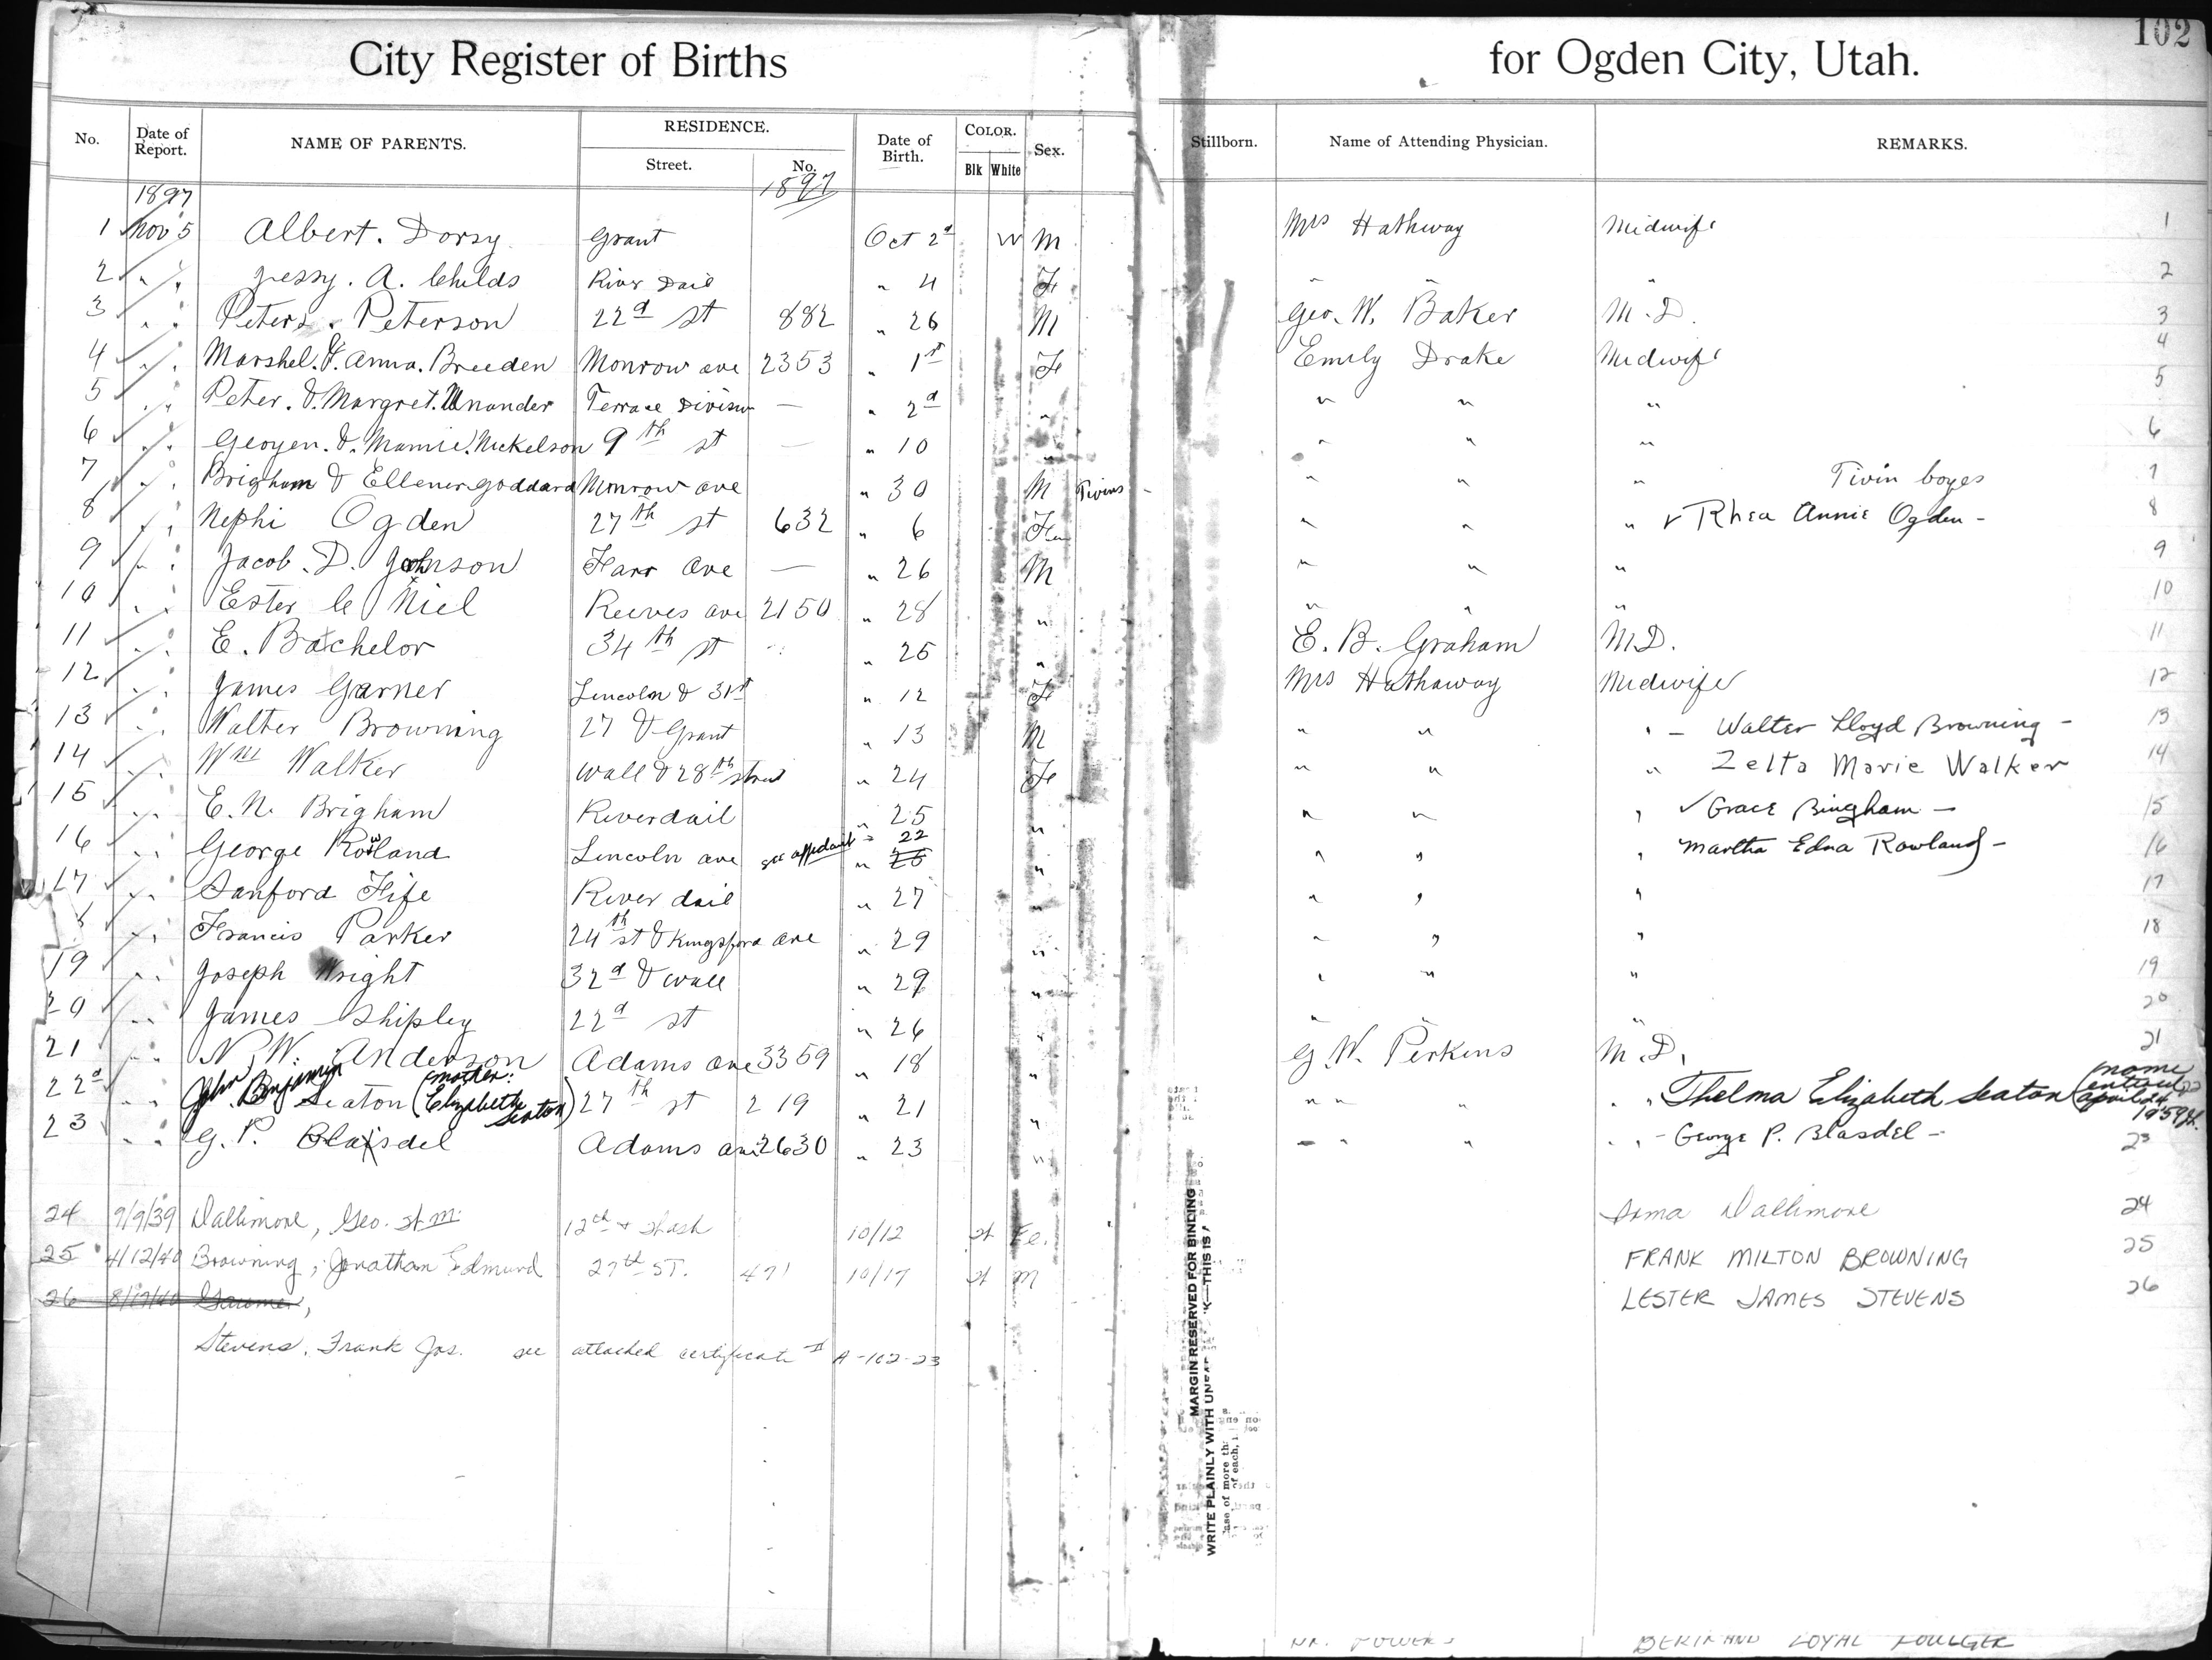 102
City Register of Births for Ogden City, Utah.
No. Date of Report. NAME OF PARENTS. RESIDENCE. Street. No. Date of Birth. COLOR. Blk White Sex. Stillborn. Name of Attending Physician. REMARKS.
1897 1897
1 Nov 5 Albert. Dorsy Grant Oct 2d W M Mrs Hathway Midwife 1
2 " " Jessy. A. Childs River Dail " 4 Fe " " " 2
3 " " Peter. Peterson 22d st 882 " 26 M Geo. W. Baker M.D. 3
4 " " Marshel. & Anna. Breeden Monrow ave 2353 " 1st Fe Emily Drake Midwife 4
5 " " Peter. & Margret. Unander Terrace Division — " 2d " " " " 5
6 " " Geogen. & Mamie. Nickelson 9th st — " 10 " " " " 6
7 " " Brigham & Ellener Goddard Monrow ave " 30 M Twins - " " " Twin boyes 7
8 " " Nephi Ogden 27th st 632 " 6 Fe " " " ✓ Rhea Annie Ogden - 8
9 " " Jacob. D. Johnson Farr Ave — " 26 M " " " 9
10 " " Ester Niel Reeves ave 2150 " 28 " " " " 10
11 " " E. Bachelor 34th st " 25 " E. B. Graham M.D. 11
12 " " James Garner Lincoln & 31st " 12 Fe Mrs Hathaway Midwife 12
13 " " Walter Browning 27 & Grant " 13 M " " " - Walter Lloyd Browning - 13
14 " " Wm Walker Wall & 28th street " 24 Fe " " " Zelta Marie Walker 14
15 " " E. N. Brigham Riverdail " 25 " " " " ✓ Grace Bingham - 15
16 " " George Rowland Lincoln ave see affedavit - 22 " 26 " " " " Martha Edna Rowland - 16
17 " " Sanford Fife River dail " 27 " " " " 17
8 " " Francis Parker 24th st & Kingsford ave " 29 " " " " 18
19 " " Joseph Wright 32d & Wall " 29 " " " " 19
20 " " James Shipley 22d st " 26 " " " " 20
21 " " N. W. Anderson Adams ave 3359 " 18 " G. W. Perkins M.D. 21
22d " " John Benjamin Seaton (mother: Elizabeth Seaton) 27th st 219 " 21 " " " " Thelma Elizabeth Seaton (name entered april 24 1959) 22
23 " " G. P. Blaisdel Adams ave 2630 " 23 " " " " - George P. Blasdel - 23
24 9/9/39 Dallimore, Geo. St M. 12th + 10/12 W Fe. Dallimore 24
25 4/12/40 Browning, Jonathan Edmund 27th ST. 471 10/17 W M FRANK MILTON BROWNING 25
26 LESTER JAMES STEVENS 26
Stevens, Frank Jas. see attached certificate # A-102-23
MARGIN RESERVED FOR BINDING
WRITE PLAINLY WITH K—THIS IS
LOYAL